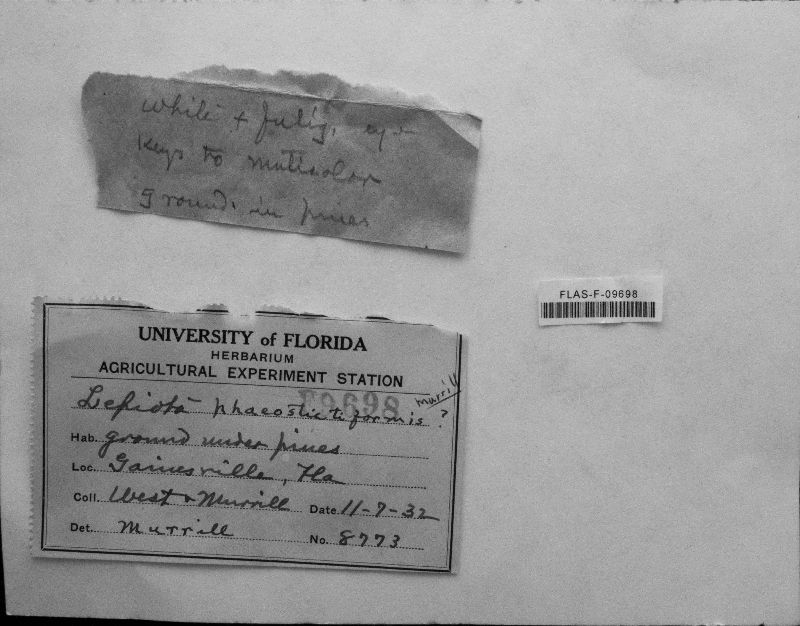 white + fulig,
Keys to
ground, in pines
FLAS-F-09698
UNIVERSITY of FLORIDA
HERBARIUM
AGRICULTURAL EXPERIMENT STATION
F9698
Lepiota phaeostictiformis Murrill ?
Hab. ground under pines
Loc. Gainesville, Fla
Coll. West + Murrill Date 11-7-32
Det. Murrill No. 8773